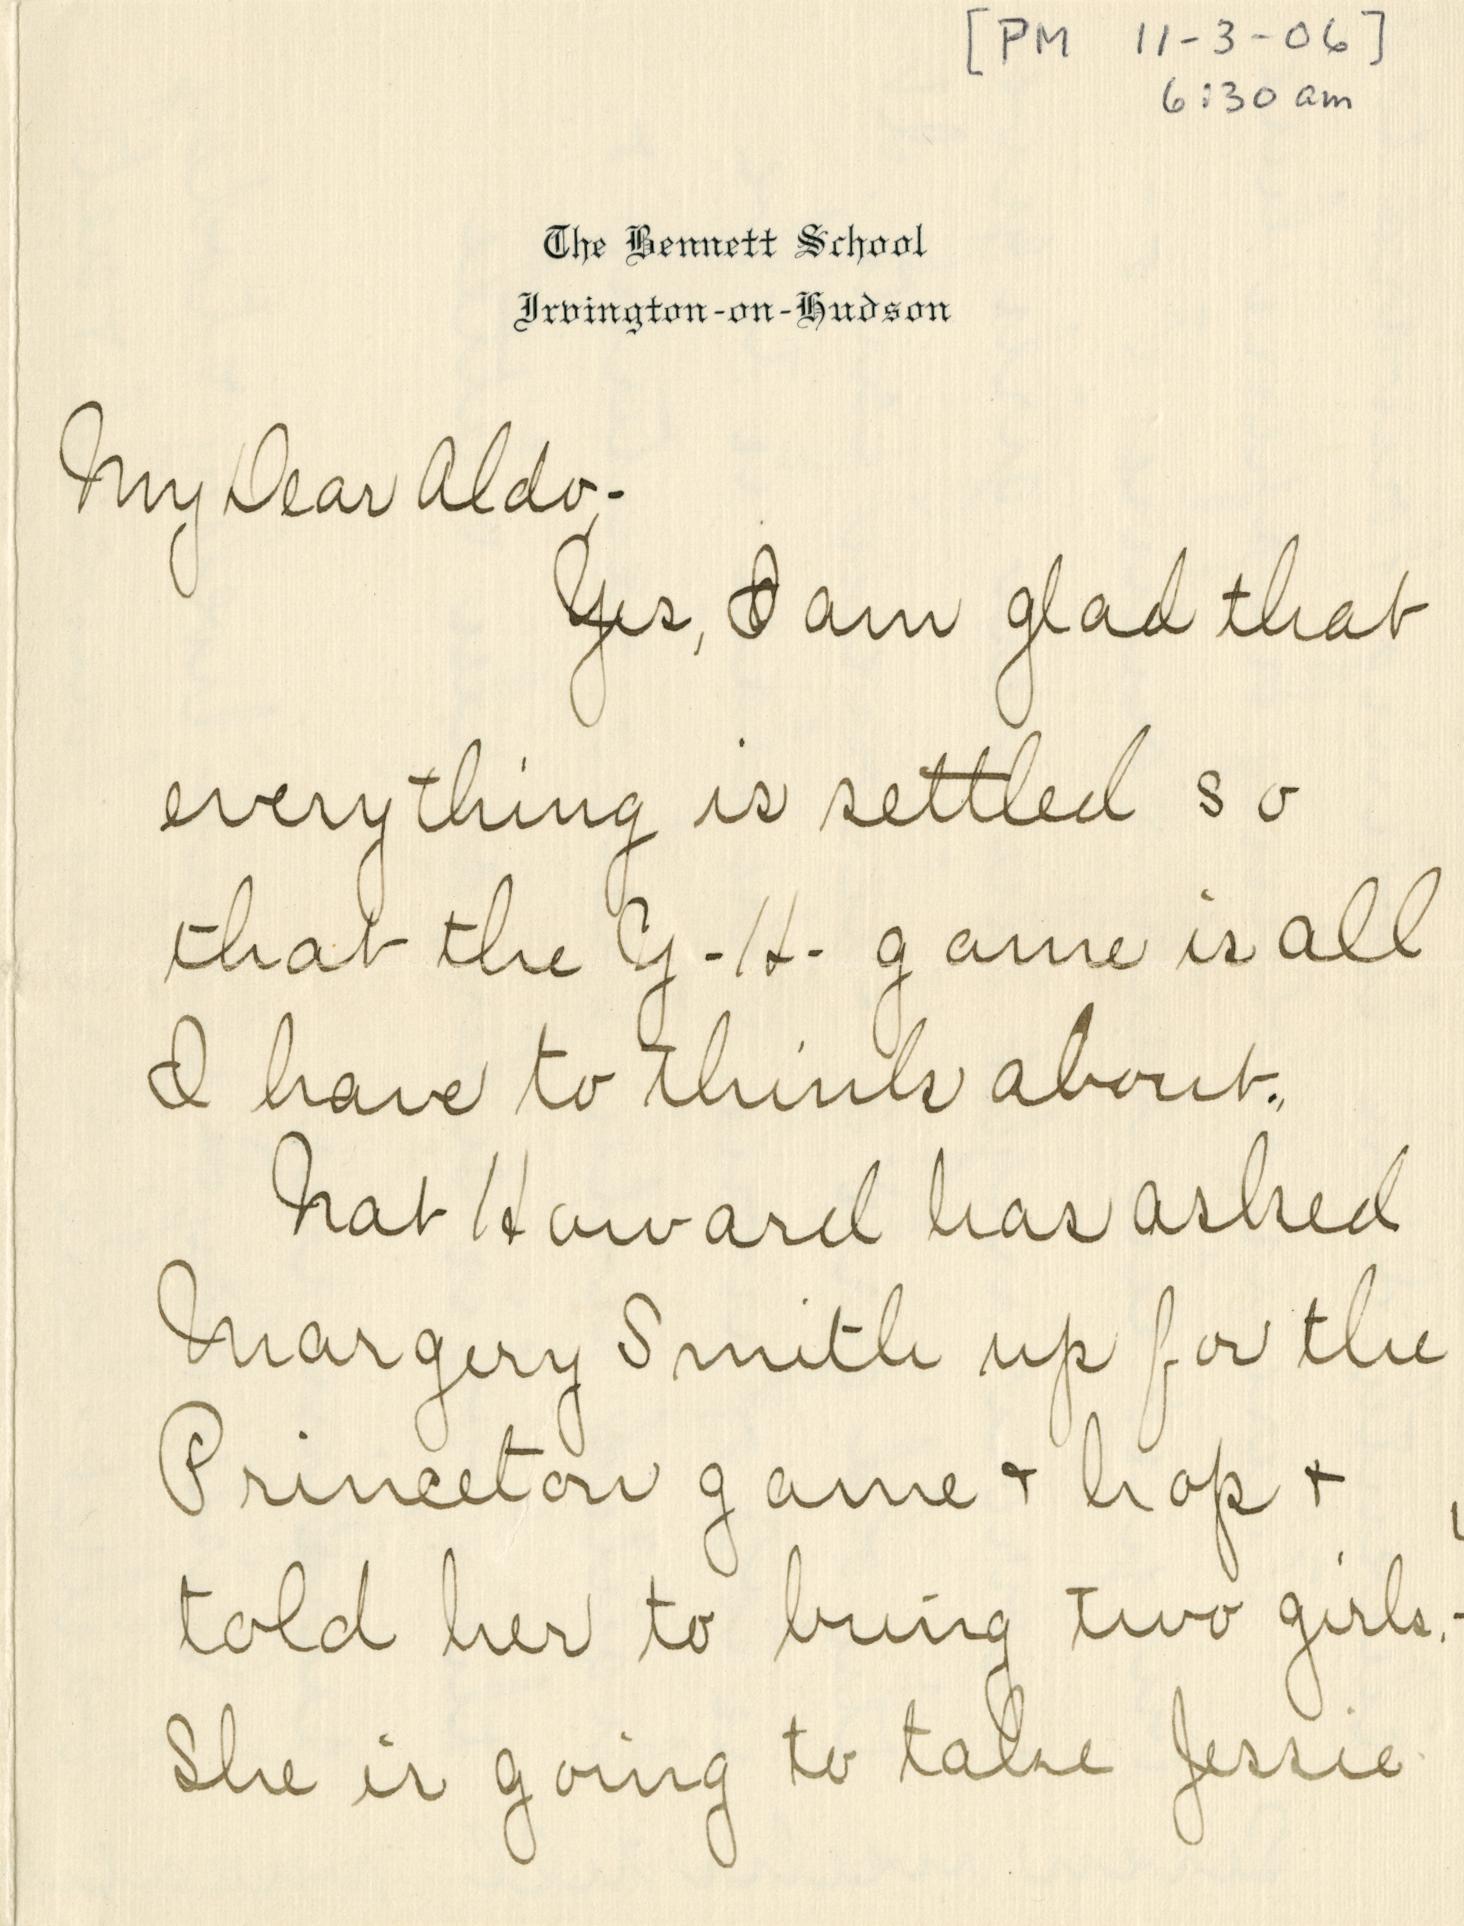 [PM 11-3-06]
6:30 am
The Bennett School
Irvington-on-Hudson
My Dear Aldo,-
Yes, I am glad that
everything is settled so
that the Y-H- game is all
I have to think about.
Nat Howard has asked
Margery Smith up for the
Princeton game + hop +
told her to bring two girls.-
She is going to take Jessie